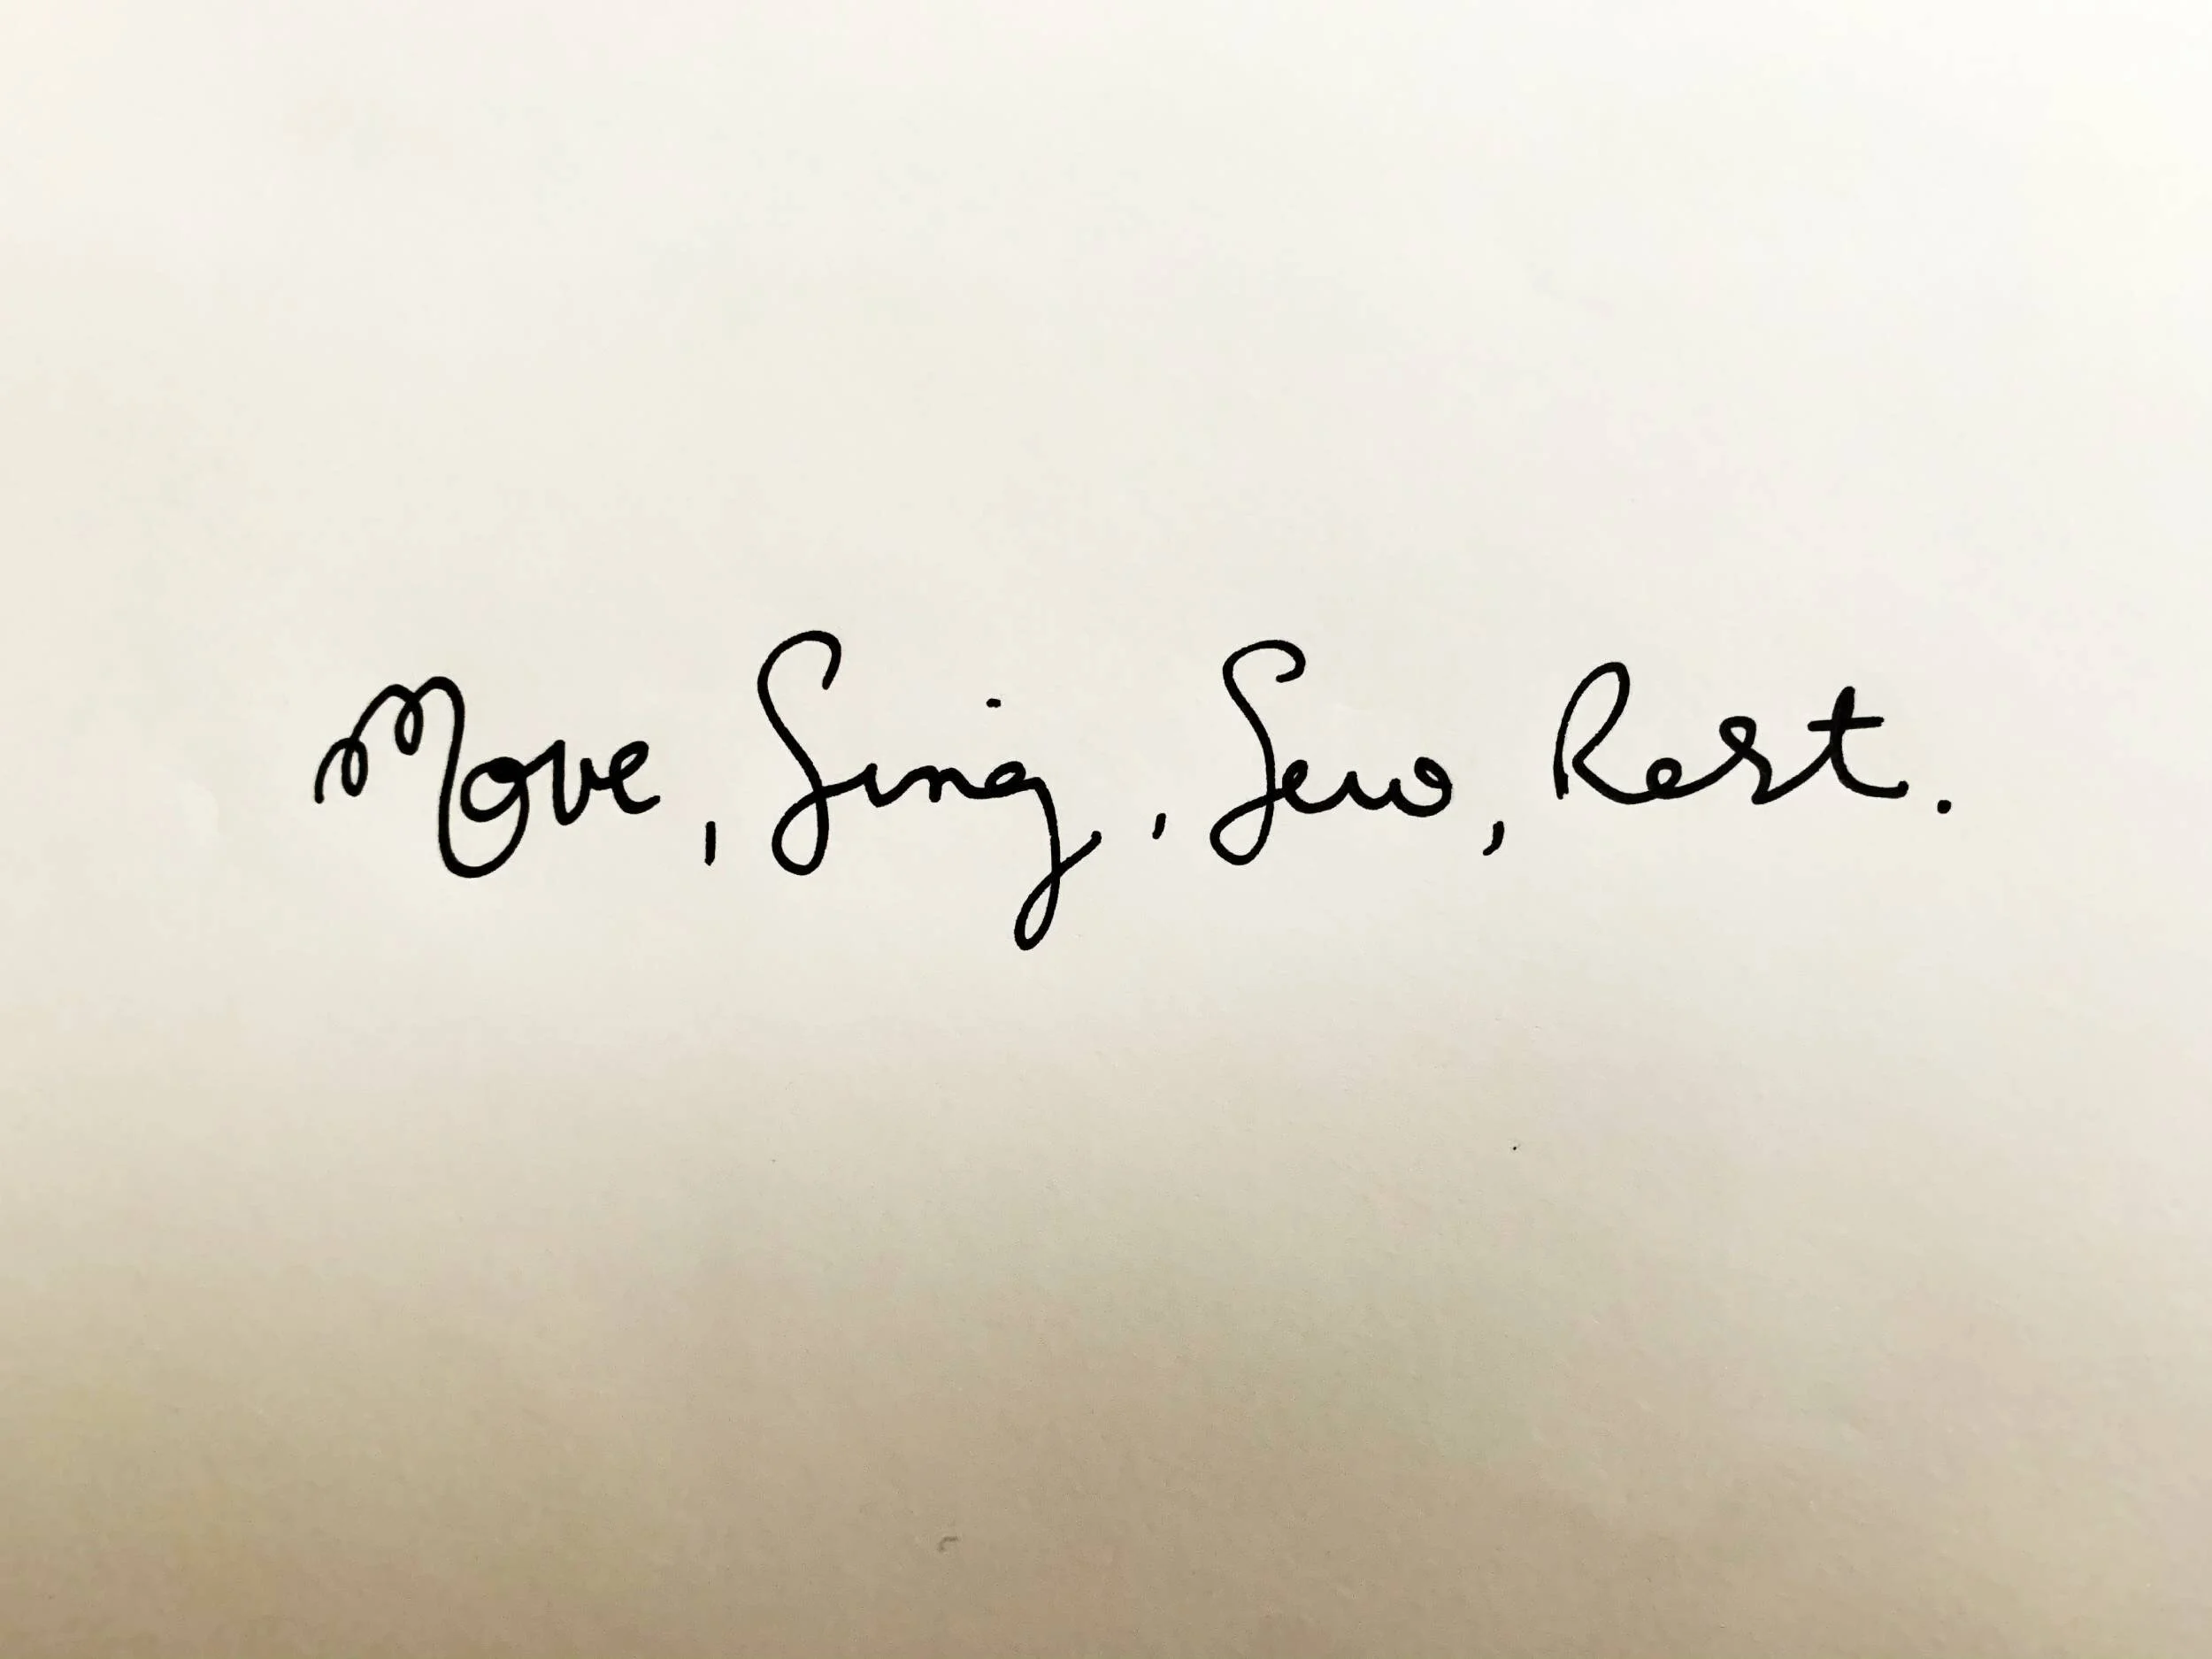 Move, Sing, Sew, Rest.